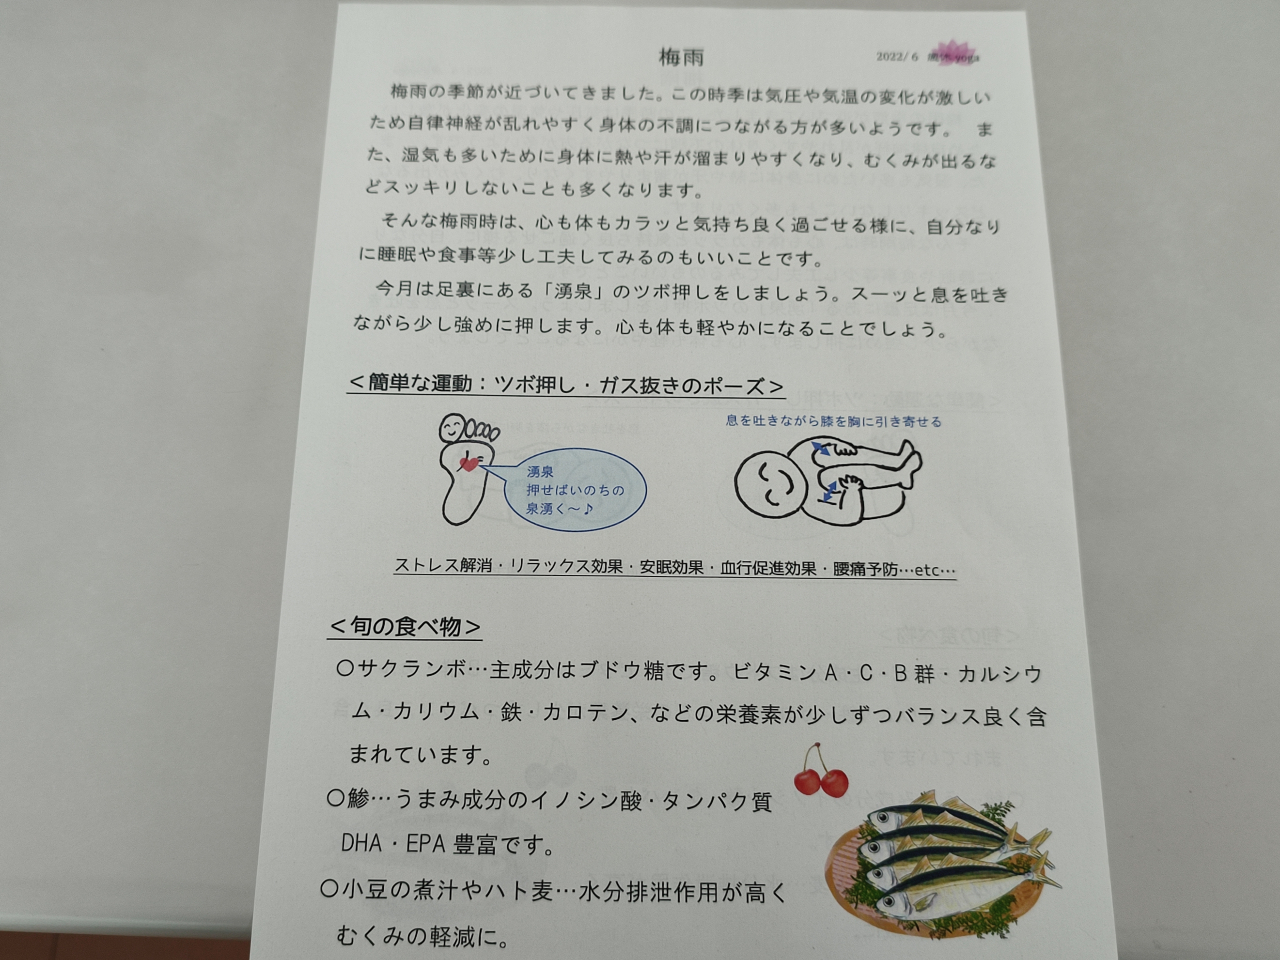 梅雨
2022/6 yoga
梅雨の季節が近づいてきました。この時季は気圧や気温の変化が激しい
ため自律神経が乱れやすく身体の不調につながる方が多いようです。 ま
た、湿気も多いために身体に熱や汗が溜まりやすくなり、むくみが出るな
どスッキリしないことも多くなります。
そんな梅雨時は、心も体もカラッと気持ち良く過ごせる様に、自分なり
に睡眠や食事等少し工夫してみるのもいいことです。
今月は足裏にある「湧泉」のツボ押しをしましょう。スーッと息を吐き
ながら少し強めに押します。心も体も軽やかになることでしょう。
＜簡単な運動：ツボ押し・ガス抜きのポーズ＞
息を吐きながら膝を胸に引き寄せる
湧泉
押せばいのちの
泉湧く～♪
ストレス解消・リラックス効果・安眠効果・血行促進効果・腰痛予防…etc…
＜旬の食べ物＞
○サクランボ…主成分はブドウ糖です。ビタミンA・C・B群・カルシウ
ム・カリウム・鉄・カロテン、などの栄養素が少しずつバランス良く含
まれています。
○鯵…うまみ成分のイノシン酸・タンパク質
DHA・EPA豊富です。
○小豆の煮汁やハト麦…水分排泄作用が高く
むくみの軽減に。